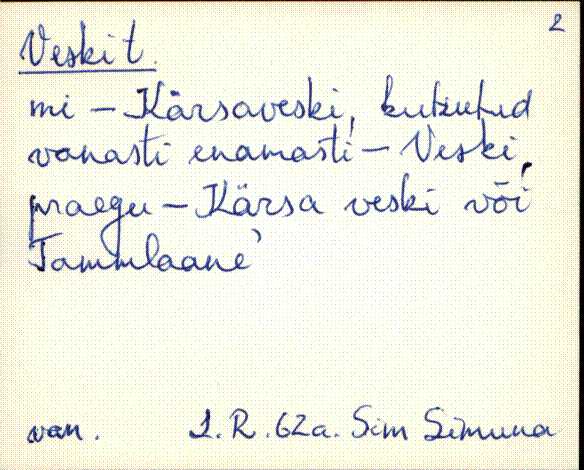 2
Veski t.
mi – Kärsaveski, kutsutud
vanasti enamasti – Veski,
praegu – Kärsa veski või
Tammlaane'
van. L. R. 62a. Sim Simuna